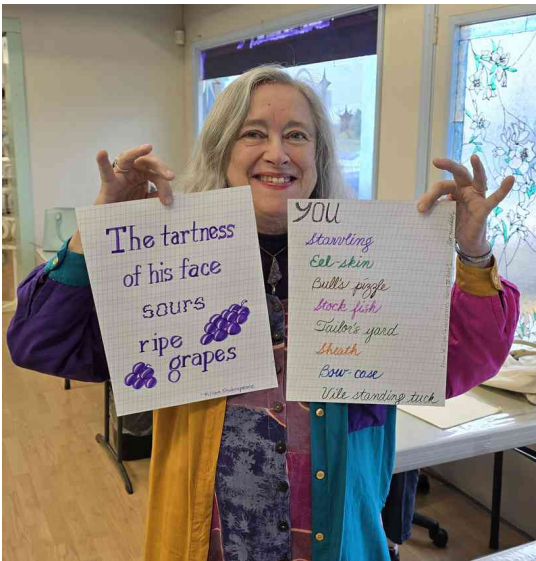 The tartness
of his face
sours
ripe
grapes
YOU
Starvling
Eel-skin
Bull's pizzle
Stock fish
Tailor's yard
Sheath
Bow-case
Vile standing tuck